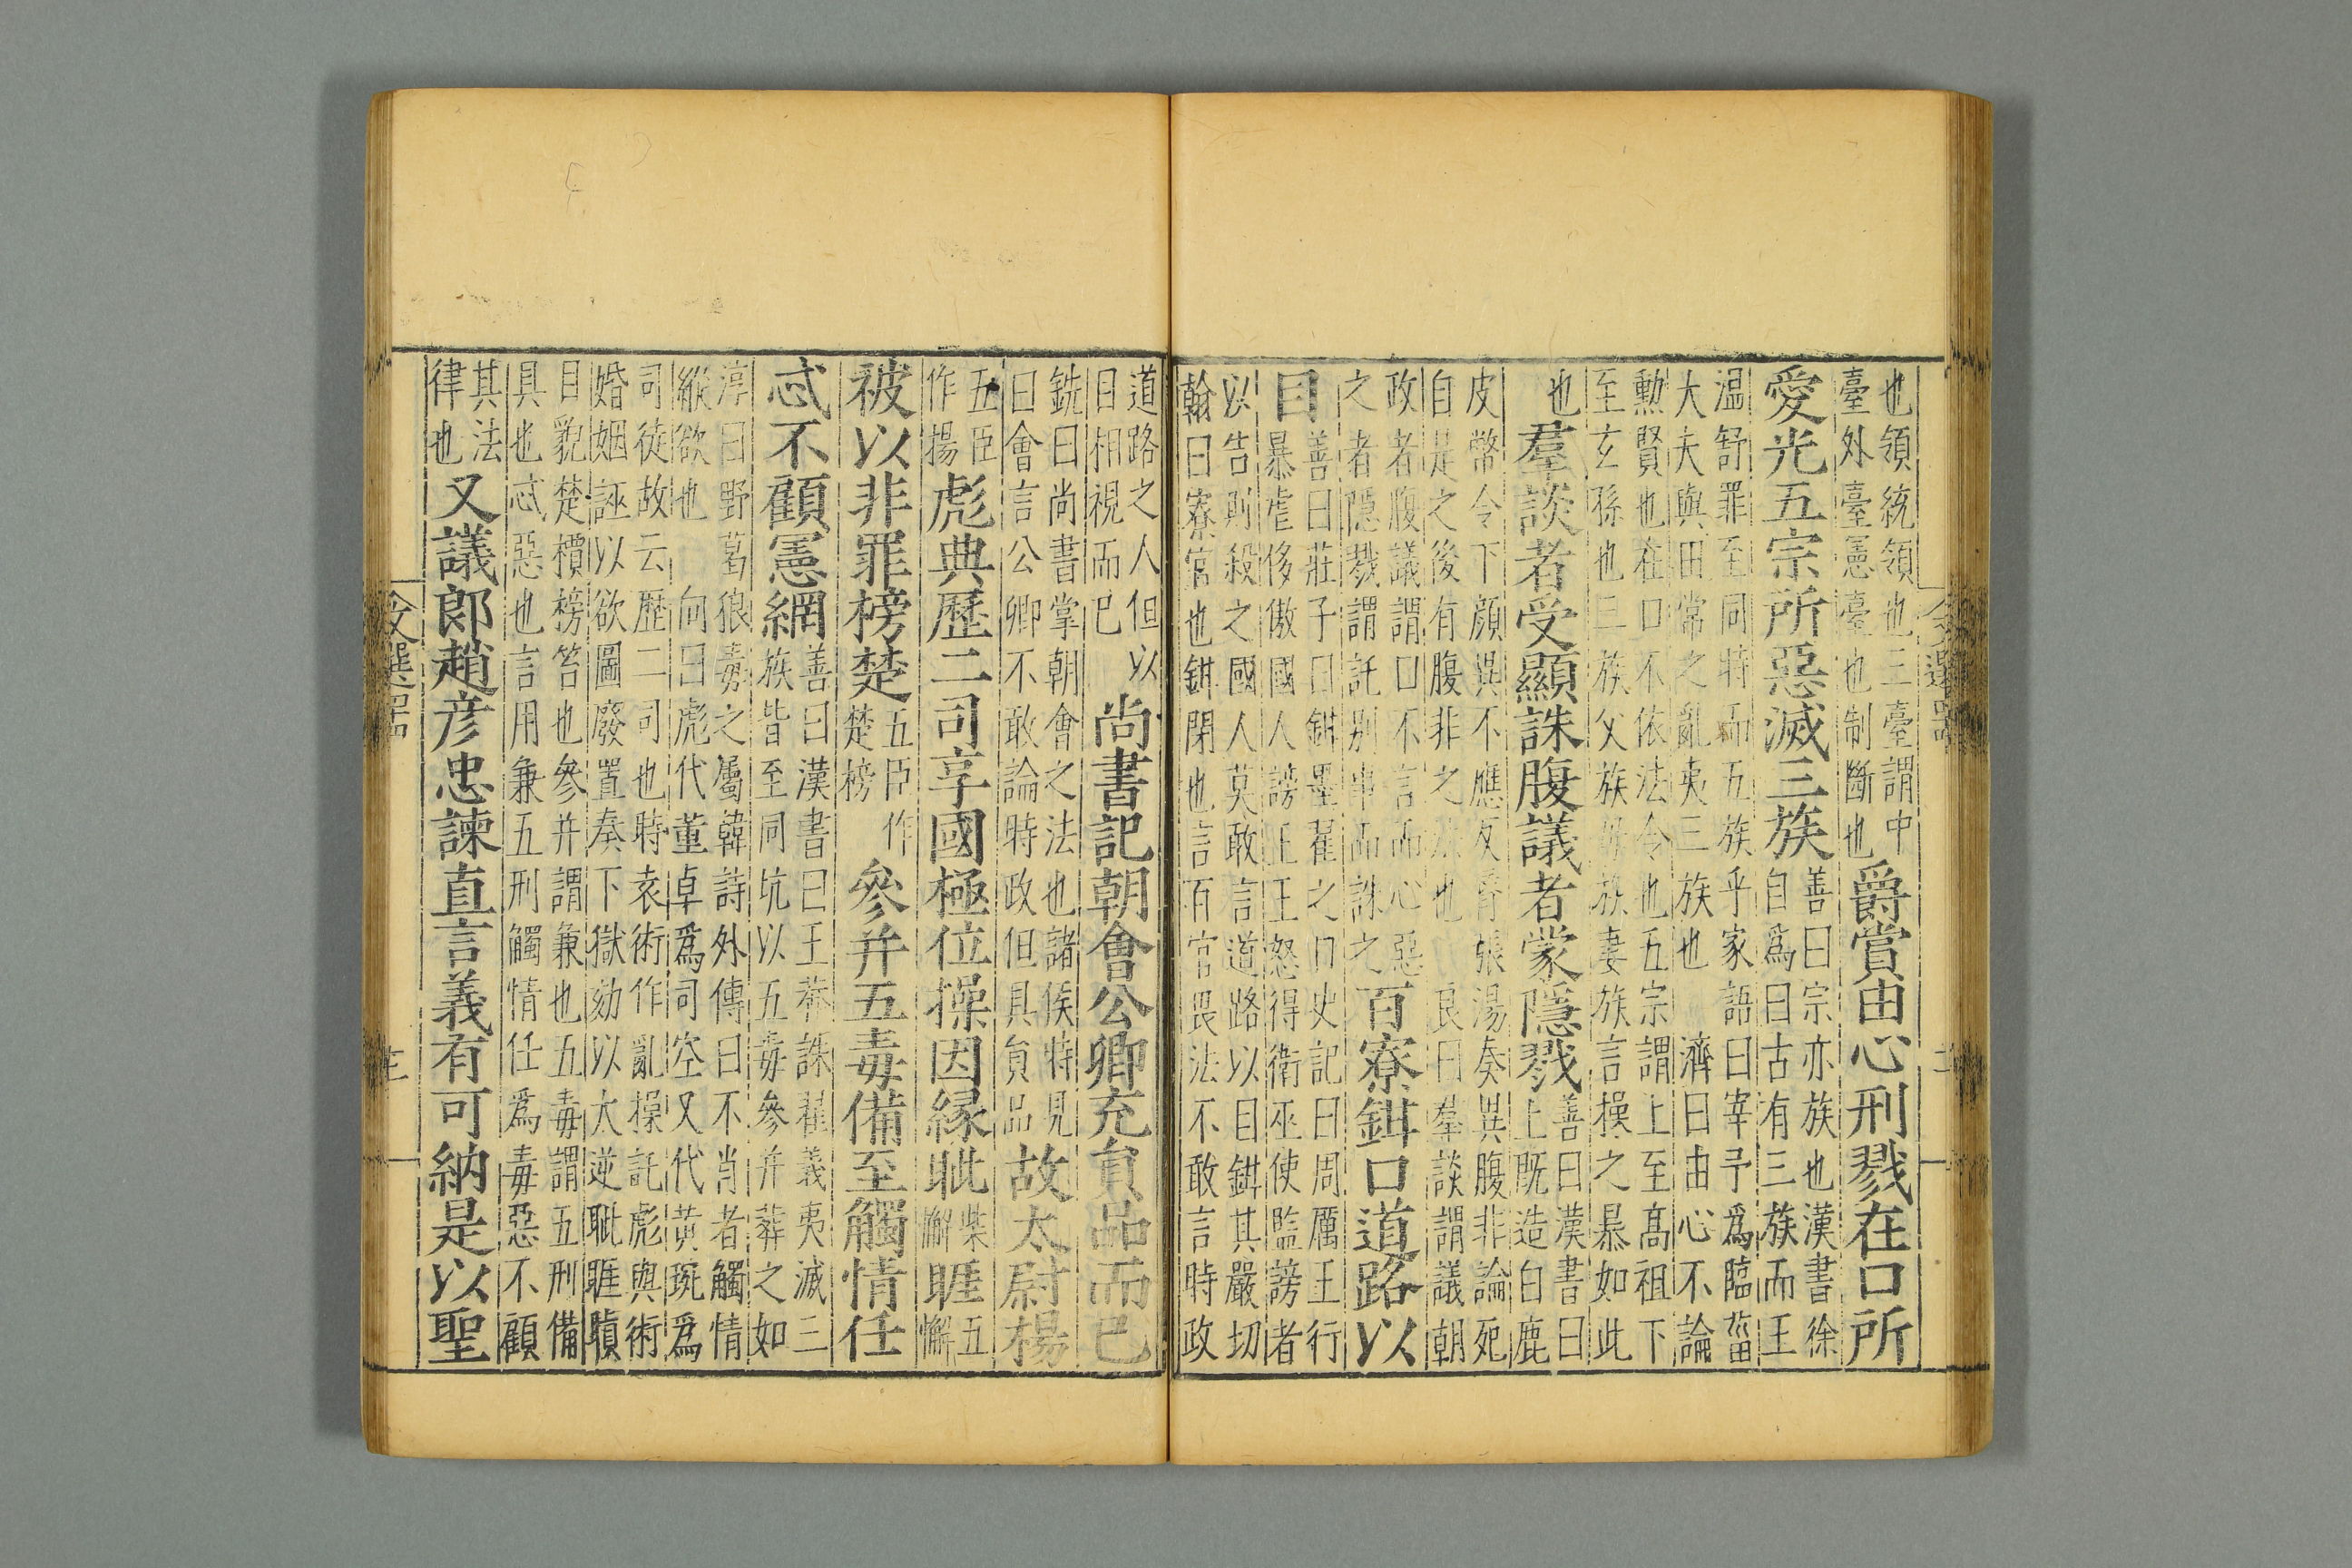 也領統領也三臺謂中
臺外臺憲臺也制斷也
爵賞由心刑戮在口所
愛光五宗所惡滅三族
善曰宗亦族也漢書徐
自為曰古有三族而王
温舒罪至同時而五族乎家語曰宰予爲臨菑
大夫與田常之亂夷三族也 濟曰由心不論
勲賢也在口不依法令也五宗謂上至髙祖下
至玄孫也三族父族母族妻族言操之暴如此
也
羣談者受顯誅腹議者蒙隱戮
善曰漢書曰
上既造白鹿
皮幣令下顔異不應反脣張湯奏異腹非論死
自是之後有腹非之法也 良曰羣談謂議朝
政者腹議謂口不言而心惡
之者隱戮謂託别事而誅之
百寮鉗口道路以
目
善曰莊子曰鉗墨翟之口史記曰周厲王行
暴虐侈傲國人謗王王怒得衛巫使監謗者
以告則殺之國人莫敢言道路以目鉗其嚴切
翰曰寮官也鉗閉也言百官畏法不敢言時政
道路之人但以
目相視而已
尚書記朝會公卿充貟品而已
銑曰尚書掌朝會之法也諸侯特見
曰會言公卿不敢論時政但具貟品
故太尉楊
五臣
作揚
彪典歷二司享國極位操因縁眦
柴
懈
睚
五
懈
被以非罪榜楚
五臣作
楚榜
參并五毒備至觸情任
忒不顧憲網
善曰漢書曰王莽誅翟義夷滅三
族皆至同坑以五毒參并葬之如
淳曰野葛狼毒之屬韓詩外傳曰不肖者觸情
縱欲也 向曰彪代董卓爲司空又代黄琬爲
司徒故云歷二司也時袁術作亂操託彪與術
婚姻誣以欲圖廢置奏下獄劾以大逆眦睚瞋
目貌楚檟榜笞也參并謂兼也五毒謂五刑備
具也忒惡也言用兼五刑觸情任爲毒惡不顧
其法
律也
又議郎趙彦忠諫直言義有可納是以聖